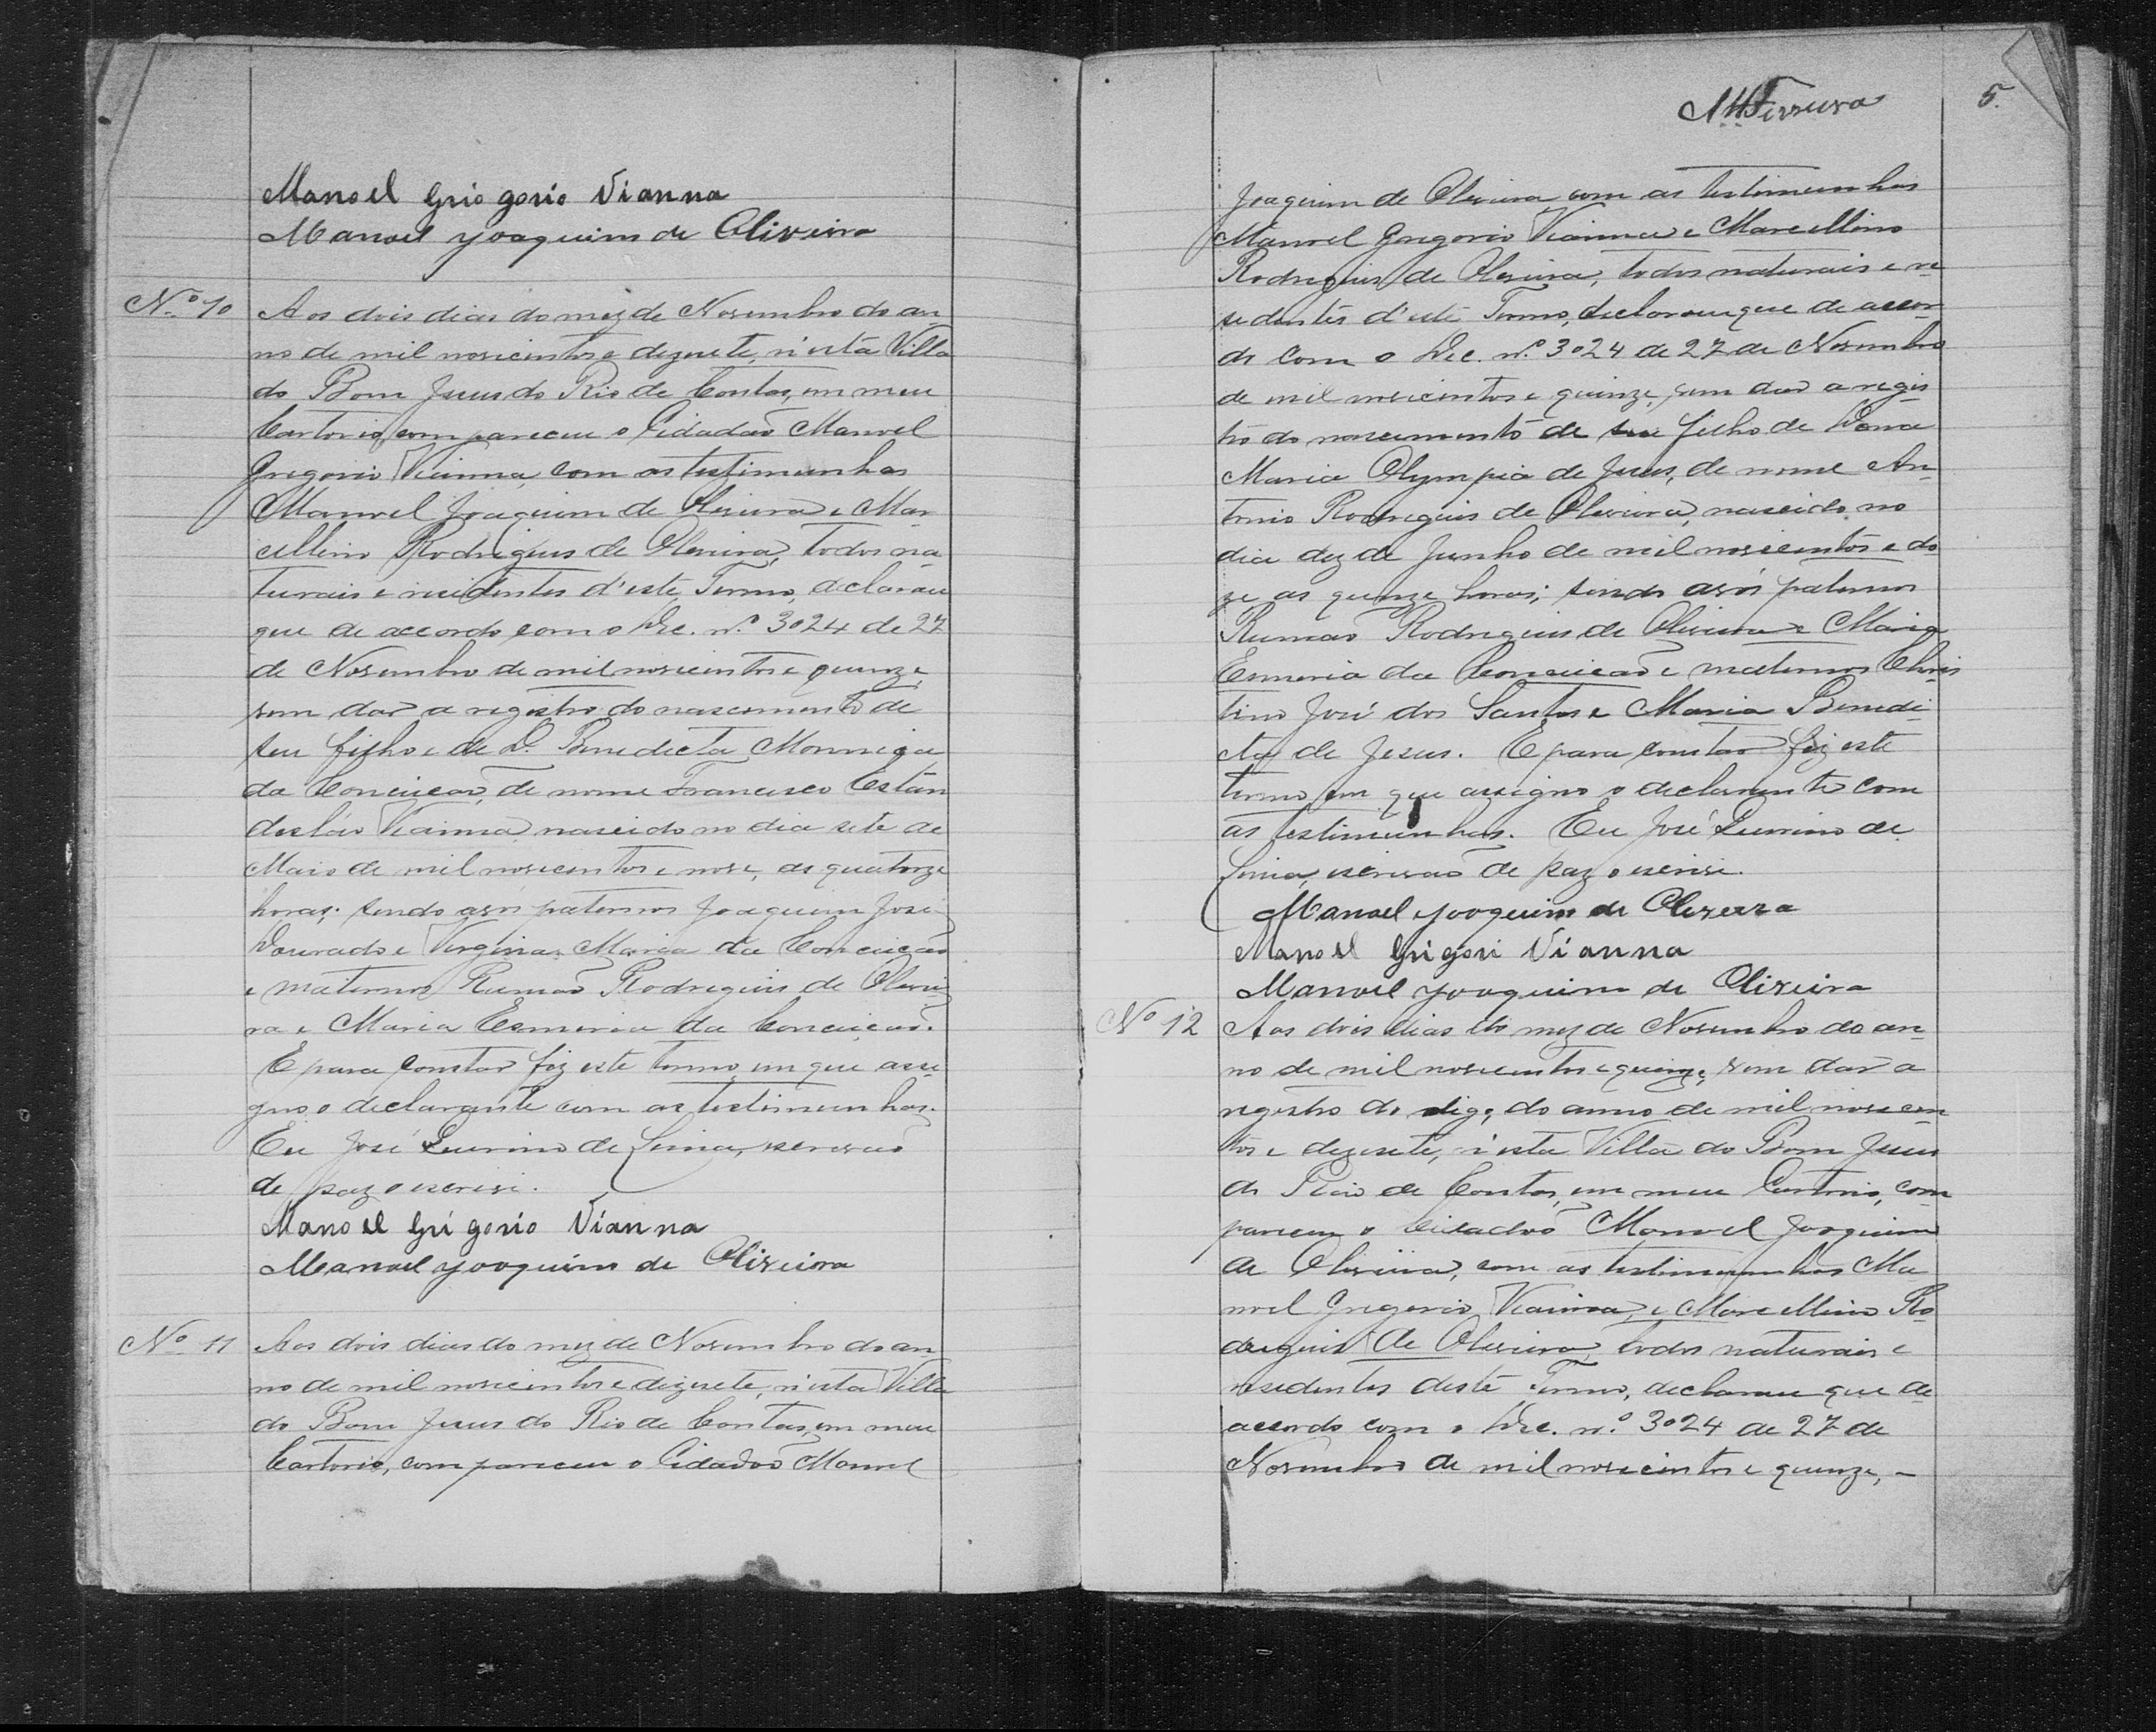 Manoel Griogorio Vianna
Manoel Joaquim de Oliveira
Nº 10
Aos dois dias do mez de Novembro do an
no de mil novicentos e dezesete, n'esta Villa
do Bom Jesus do Rio de Contas, em meu
Cartorio, compareceu o Cidadão Manoel
Gregorio Vianna, com as testimunhas
Manoel Joaquim de Oliveira e Mar
cellino Rodrigues de Oliveira, todos na
turais e residentes d'este Termo, declarou
que de accordo com o Dec. nº 3024 de 27
de Novembro de mil novicentos e quinze,
vem dar a registro do nascimento de
seu filho e de D. Benedicta
da Conceicão, de nome Francisco Estan
desláo Vianna, nascido no dia sete de
Maio de mil novicentos e nove, as quatorze
horas; sendo avós paternos Joaquim José
Dourado e Virginia Maria da Conceicão
e maternos Rumão Rodrigues de Olivei
ra e Maria Esmeria da Conceicão.
E para constar fiz este termo em que assi
gno o declarante com as testimunhas.
Eu José Quirino de Lima, escrivão
de paz o escrivi.
Manoel Grigorio Vianna
Manoel Joaquim de Oliveira
Nº 11
Aos dois dias do mez de Novembro do an
no de mil novicentos e dezesete, n'esta Villa
do Bom Jesus do Rio de Contas, em meu
Cartorio, compareceu o Cidadão Manoel
5.
Joaquim de Oliveira com as testimunhas
Manoel Gregorio Vianna e Marcellino
Rodrigues de Oliveira, todos naturais e re
sedentes d'este Termo, declarou que de accor
do com o Dec. nº 3024 de 27 de Novembro
de mil novicentos e quinze, vem dar a regis
tro do nascimento de seu filho de Dona
Maria Olympia de Jesus, de nome An
tonio Rodrigues de Oliveira, nascido no
dia dez de Junho de mil novicentos e do
ze as quinze horas; sendo avós paternos
Rumão Rodrigues de Oliveira e Maria
Esmeria da Conceicão e maternos Chris
tino José dos Santos e Maria Benedi
cta de Jesus. E para constar fiz este
termo em que assigno o declarante com
as testimunhas. Eu José Quirino de
Lima, escrivão de paz o escrivi.
Manoel Joaquim de Oliveira
Manoel Grigori Vianna
Manoel Joaquim de Oliveira
Nº 12
Aos dois dias do mez de Novembro do an
no de mil novicentos e quinze, vem dar a
registro do digo, do anno de mil novicen
tos e dezesete, n'esta Villa do Bom Jesus
do Rio de Contas, em meu Cartorio, com
pareceu o Cidadão Manoel Joaquim
de Oliveira, com as testimunhas Ma
noel Gregorio Vianna, e Marcellino Ro
drigues de Oliveira, todos naturais e
resedentes deste Termo, declarou que de
accordo com o Dec. nº 3024 de 27 de
Novembro de mil novicentos e quinze, -